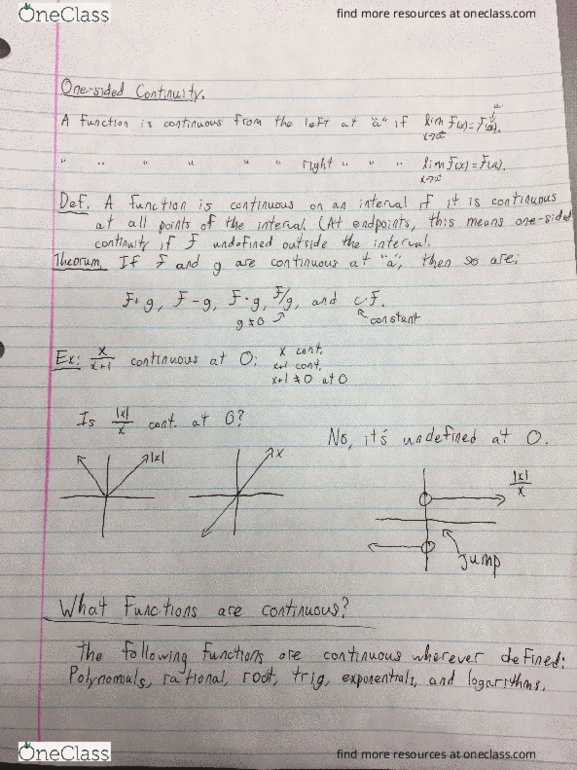 OneClass
find more resources at oneclass.com
One-sided Continuity.
A function is continuous from the left at "a" if lim f(x)=f(a).
" " " " " right " " " lim f(x)=f(a).
Def. A function is continuous on an interval if it is continuous
at all points of the interval. (At endpoints, this means one-sided
continuity if f undefined outside the interval.
Theorum. If f and g are continuous at "a", then so are:
f+g, f-g, f·g, f/g, and c·f.
g≠0 constant
Ex: x/x+1 continuous at 0: x cont.
x+1 cont.
x+1≠0 at 0
Is |x|/x cont. at 0?
No, it's undefined at 0.
|x| x |x|/x
Jump
What Functions are continuous?
The following functions are continuous wherever defined:
Polynomials, rational, root, trig, exponentials, and logarithms.
OneClass
find more resources at oneclass.com